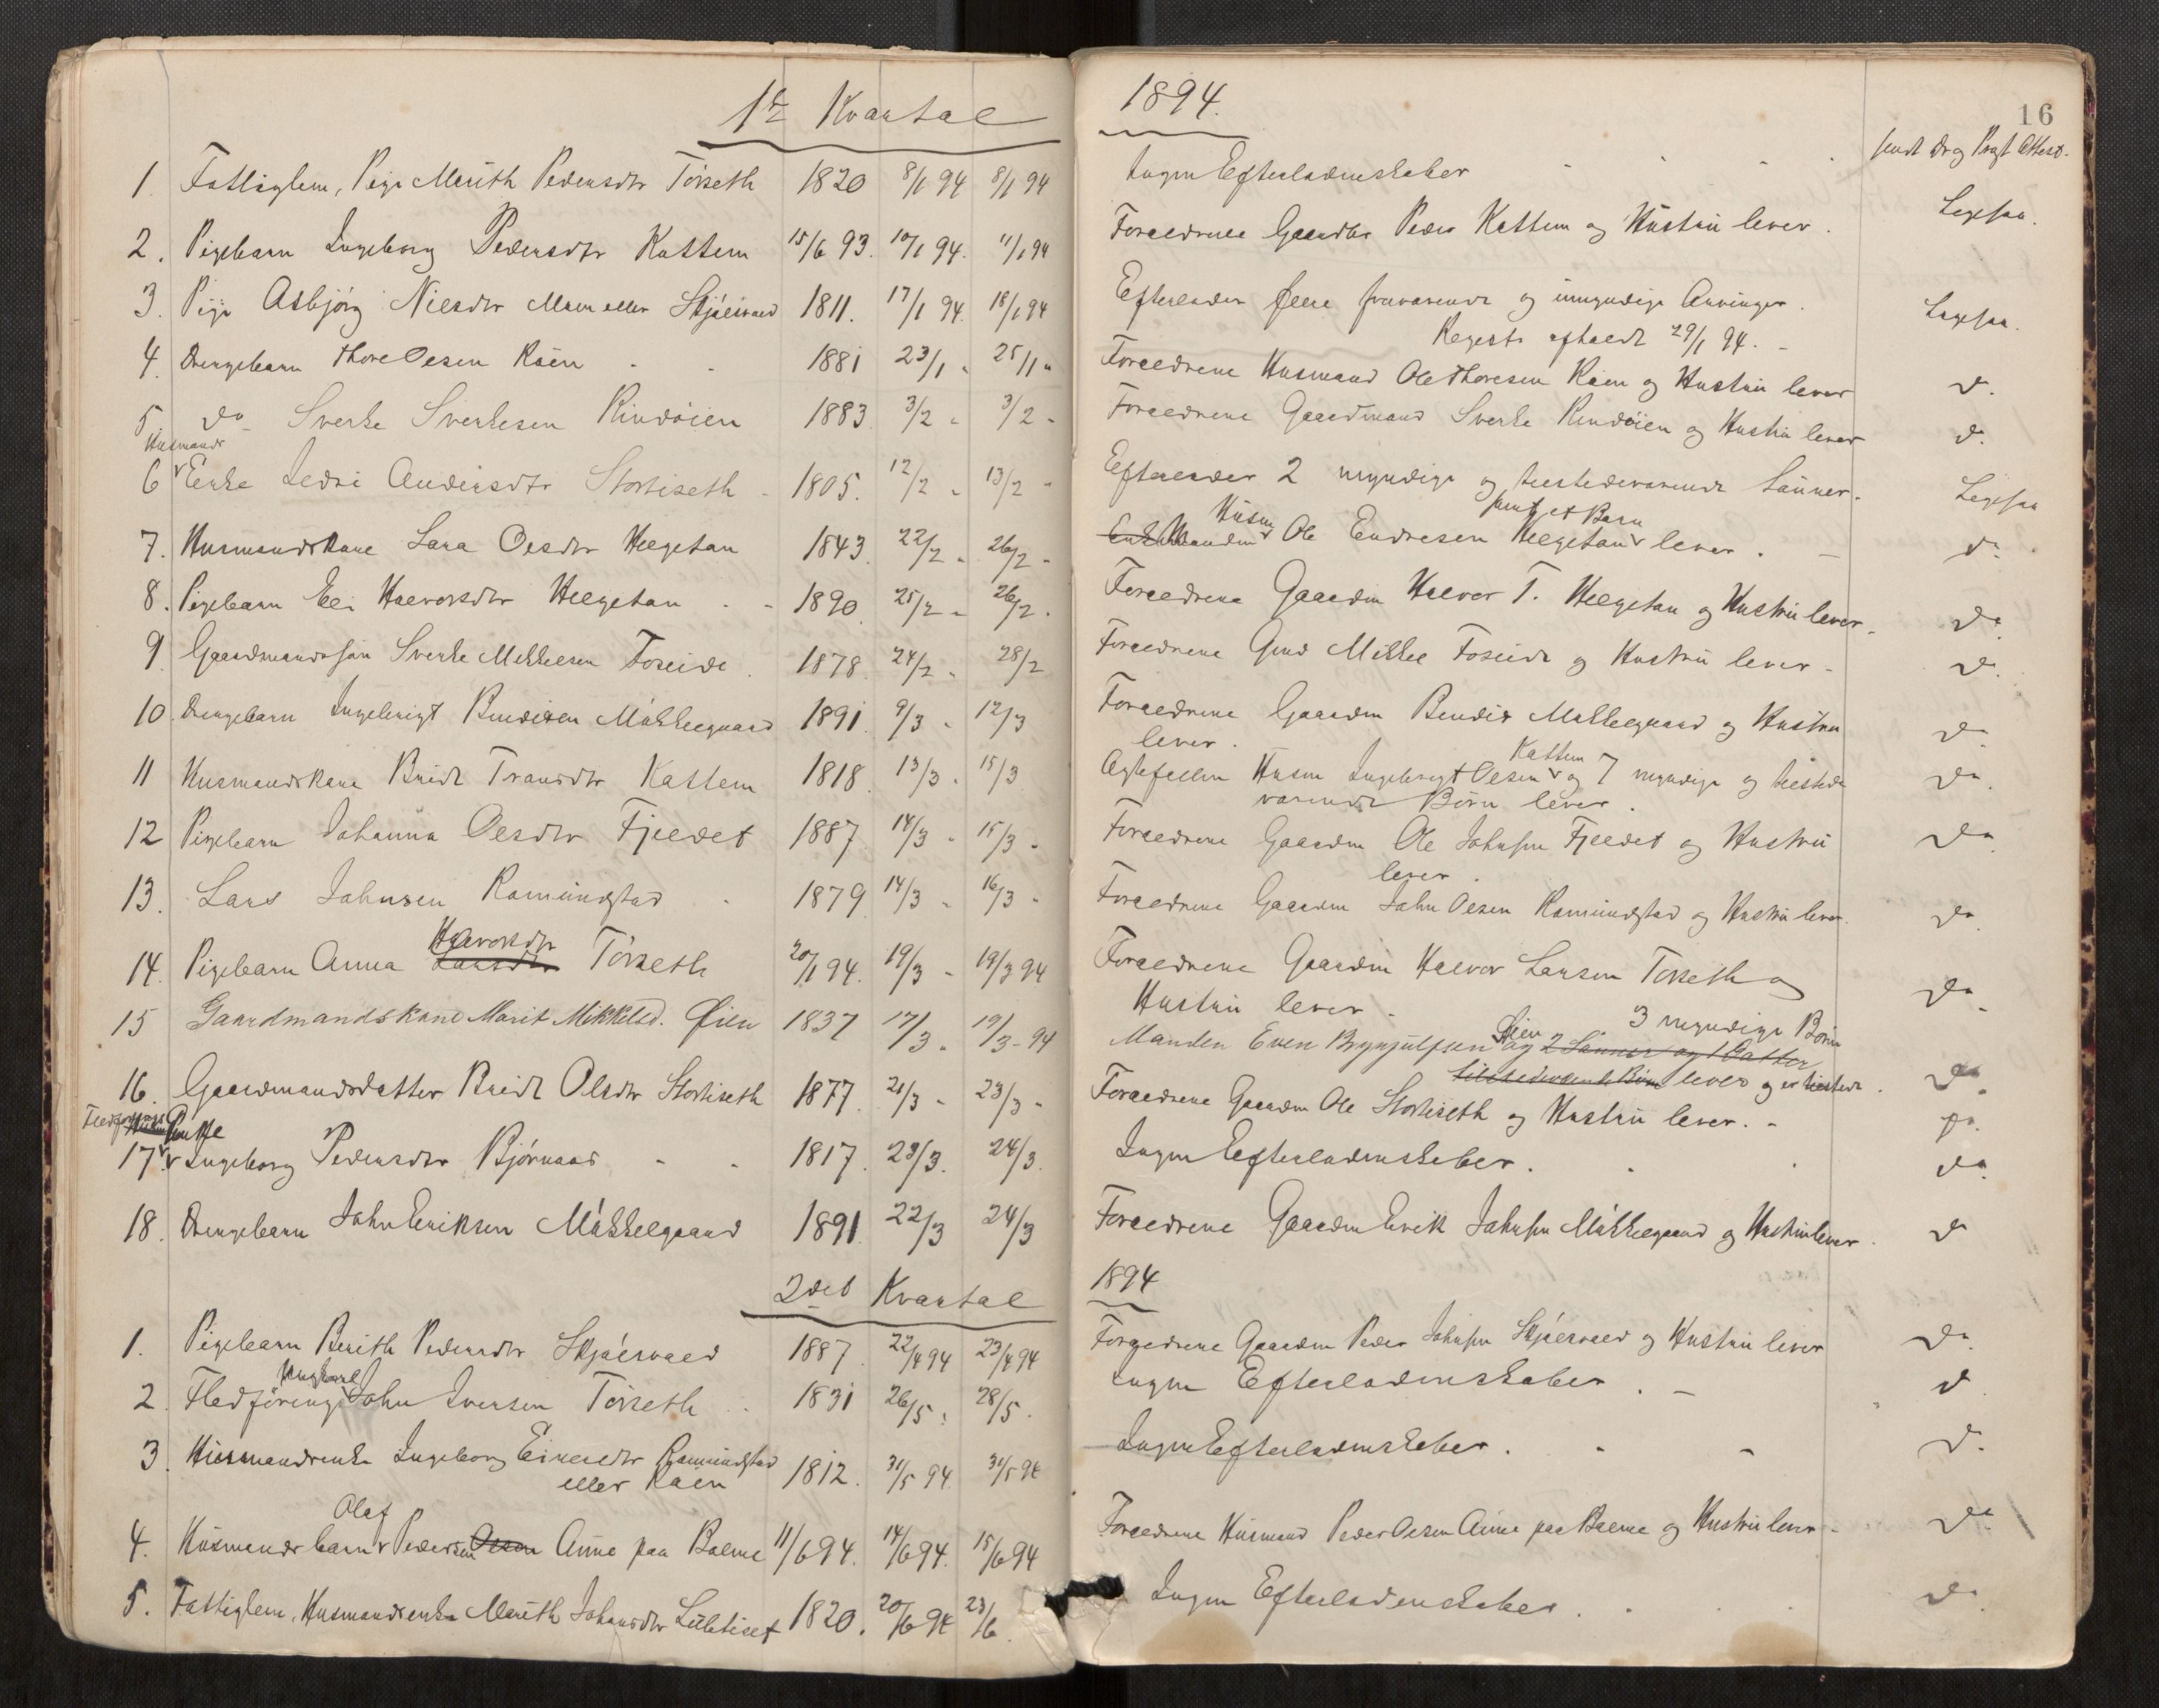 1ste Kvartal
1. Fattiglem, Pige Marith Pedersdtr Törseth 1820 8/1 94 8/1 94
2. Pigebarn Ingeborg Pedersdtr Kattem 15/6 93. 10/1 94. 11/1 94
3. Pige Asbjörg Nilsdtr Moen eller Skjölsvold 1811. 17/1 94. 18/1 94
4. Drengebarn Thore Olsen Röen 1881 23/1 " 25/1 "
5 do Sverke Sverkesen Rindöien 1883 3/2 " 3/2 "
Husmands
6 Enke Sedsi Andersdtr Stortiseth 1805. 12/2 " 13/2 "
7. Husmandskone Lara Olsdtr Helgetun 1843. 22/2 " 26/2 "
8. Pigebarn Eli Halvorsdtr Helgetun 1890. 25/2 " 26/2.
9 Gaardmandssön Sverke Mikkelsen Foseide 1878. 24/2 " 28/2
10. Drengebarn Ingebrigt Bendixen Mökkelgaard 1891 9/3 " 12/3
11 Husmandskone Brit Transdtr Kattem 1818. 13/3 " 15/3
12 Pigebarn Johanna Olsdtr Fjeldet 1887 14/3 " 15/3 "
13. Lars Johnsen Romundstad 1879 14/3 " 16/3 "
Halvorsdtr
14. Pigebarn Anna Larsdtr Törseth 20/1 94. 19/3 " 19/3 94
15 Gaardmandskone Marit Mikkelsd. Øien 1837 17/3 " 19/3 - 94
16. Gaardmandsdatter Brit Olsdtr Stortiseth 1877 21/3 " 23/3 "
17 Ingeborg Pedersdtr Bjørnaas 1817. 23/3. 24/3.
18. Drengebarn John Eriksen Mökkelgaard 1891 22/3 24/3
2det Kvartal
1. Pigebarn Berith Pedersdtr Skjölsvold 1887 22/4 94 23/4 94
Ungkarl
2. Fledföring John Iversen Törseth 1831 26/5 " 28/5.
3. Husmandsenke Ingeborg Einersdtr Romundstad 1812. 31/5 94. 31/5 94
eller Röen
Olaf
4. Husmands barn Pedersen Olsen Aune paa Bolme 11/6 94. 14/6 94. 15/6 94
5. Fattiglem, Husmandsenke Marith Johansdtr Lilletiset 1820. 20/6 94 23/6.
1894.
16
sendt Attest.
Ingen Efterladenskaber
Forældrene Gaardbr Peder Kattem og Hustru lever.
Efterlader flere fraværende og umyndige Arvinger.
29/1 94.
Forældrene Husmand Ole Thoresen Röen og Hustru lever do
Forældrene Gaardmand Sverke Rindöien og Hustru lever do
Efterlader 2 myndige og tilstedeværende Sönner.
Husm samt et Barn
Ole Endresen Helgetun lever. do
Forældrene Gaardm Halvor T. Helgetun og Hustru lever. do
Forældrene Gmd Mikkel Foseide og Hustru lever. do
Forældrene Gaardm Bendix Mökkelgaard og Hustru do
lever.
Kattem
Ægtefællen Husm Ingebrigt Olsen og 7 myndige og tilstede do
værende Börn lever.
Forældrene Gaardm Ole Johnsen Fjeldet og Hustru do
lever.
Forældrene Gaardm John Olsen Romundstad og Hustru lever. do
Forældrene Gaardm Halvor Larsen Törseth og do
Hustru lever.
Öien 3 myndige Börn
Manden Even Brynjulfsen og 2 Sönner og 1 Datter
tilstedeværende Börn lever og er tilstede. do
Forældrene Gaardm Ole Stortiseth og Hustru lever. do
Ingen Efterladenskaber. do
Forældrene Gaardm Erik Johnsen Mökkelgaard og Hustru lever. do
1894
Forældrene Gaardm Peder Johnsen Skjölsvold og Hustru lever do
Ingen Efterladenskaber. do
Ingen Efterladenskaber. do
Forældrene Husmand Peder Olsen Aune paa Bolme og Hustru lever do
Ingen Efterladenskaber. do